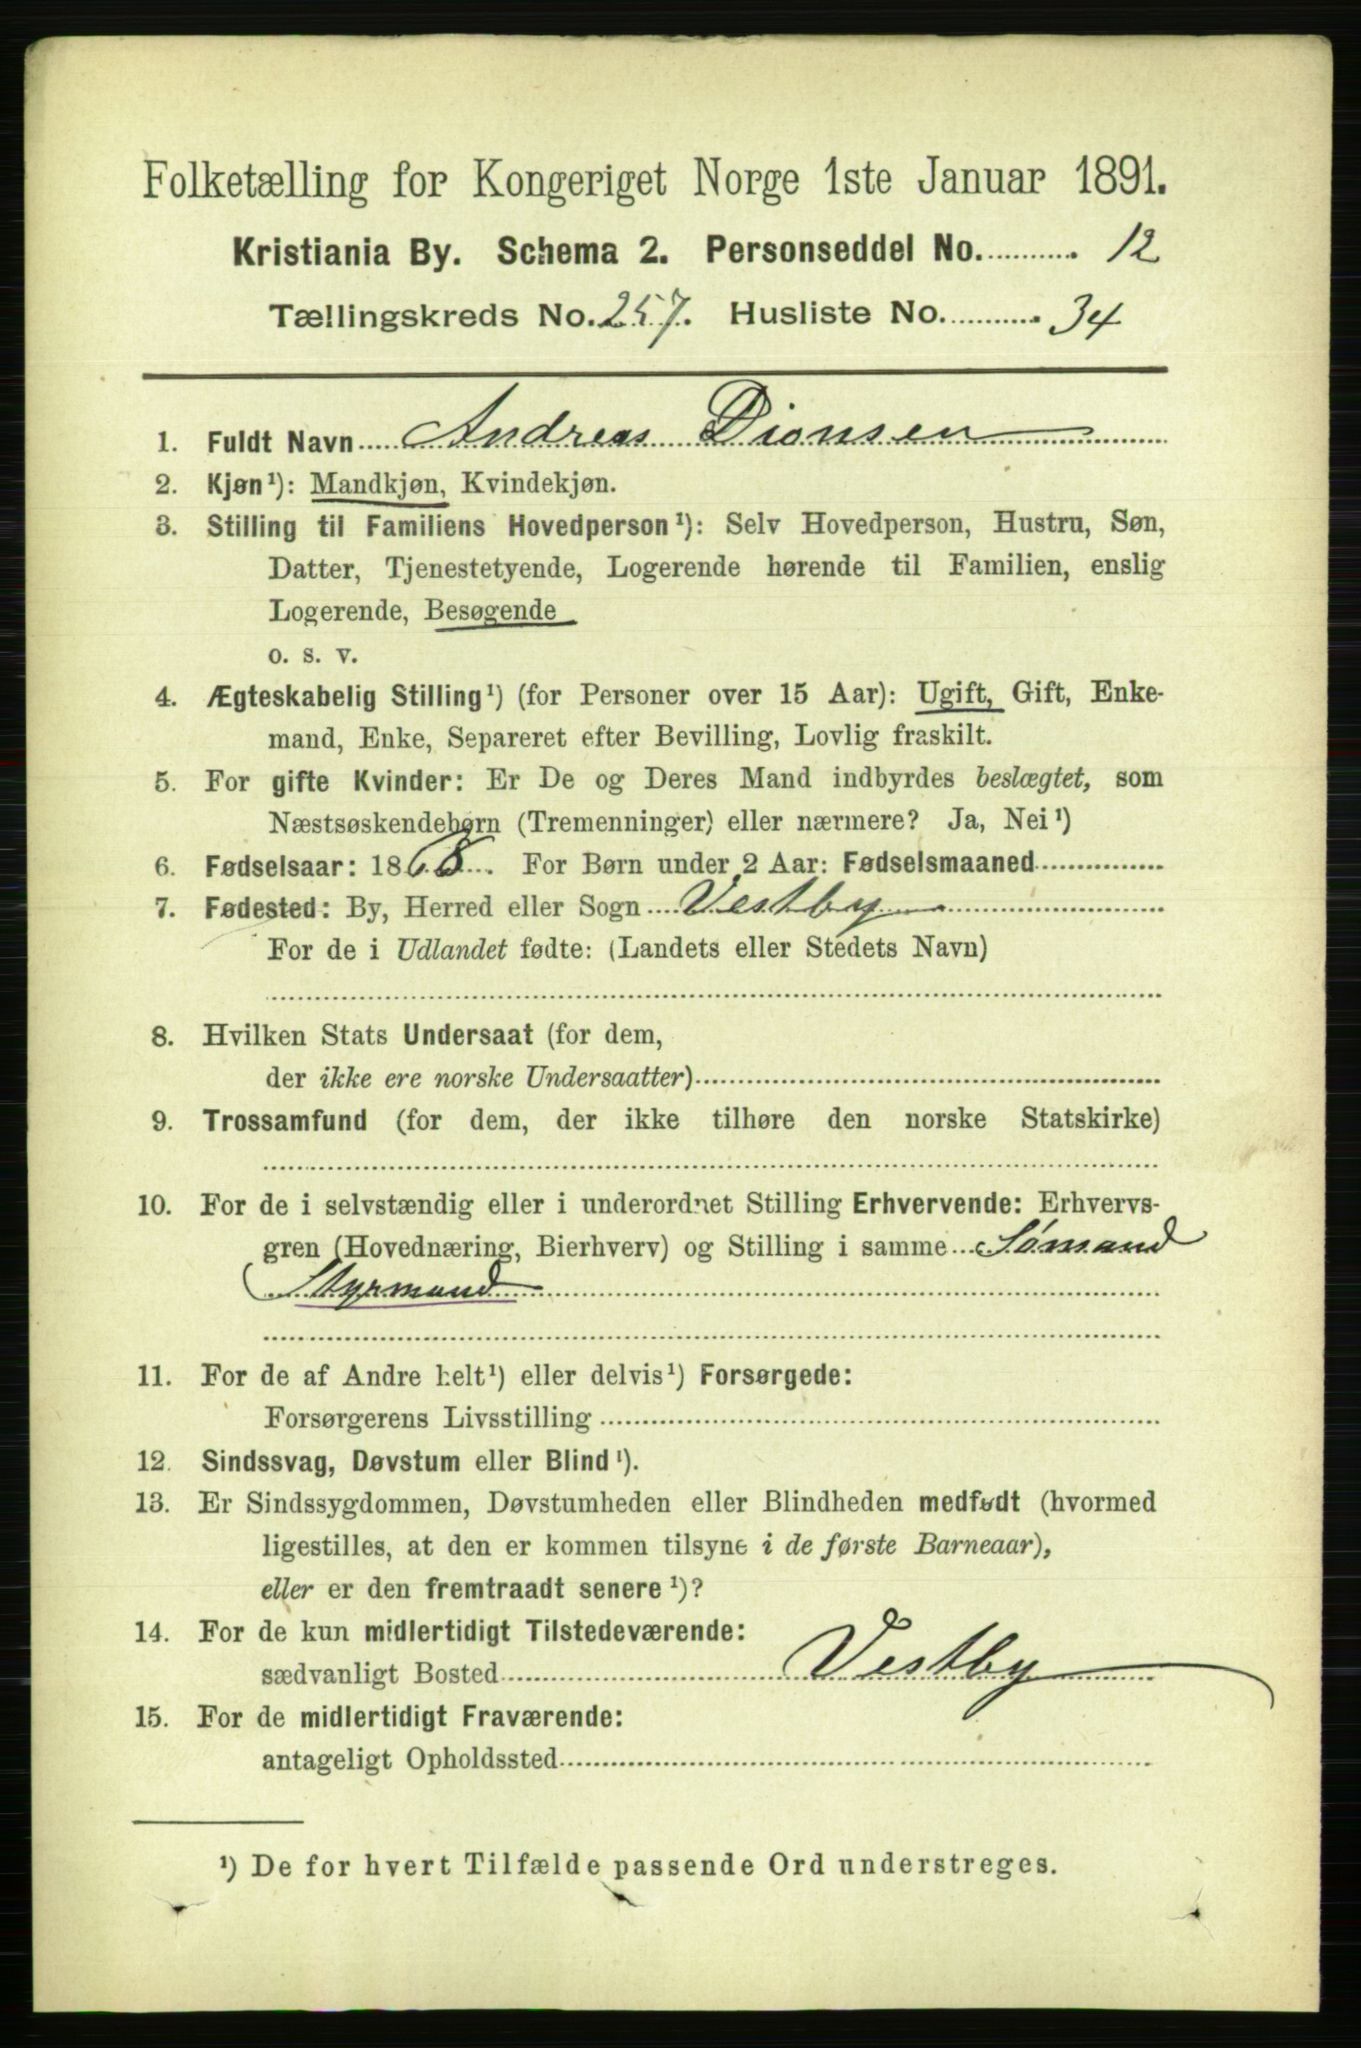 Folketælling for Kongeriget Norge 1ste Januar 1891.
Kristiania By. Schema 2. Personseddel No. 12
Tællingskreds No. 257. Husliste No. 34
1. Fuldt Navn Andreas Dionsen
2. Kjøn¹): Mandkjøn, Kvindekjøn.
3. Stilling til Familiens Hovedperson¹): Selv Hovedperson, Hustru, Søn,
Datter, Tjenestetyende, Logerende hørende til Familien, enslig
Logerende, Besøgende
o. s. v.
4. Ægteskabelig Stilling¹) (for Personer over 15 Aar): Ugift, Gift, Enke-
mand, Enke, Separeret efter Bevilling, Lovlig fraskilt.
5. For gifte Kvinder: Er De og Deres Mand indbyrdes beslægtet, som
Næstsøskendebørn (Tremenninger) eller nærmere? Ja, Nei¹)
6. Fødselsaar: 1868. For Børn under 2 Aar: Fødselsmaaned
7. Fødested: By, Herred eller Sogn Vestby
For de i Udlandet fødte: (Landets eller Stedets Navn)
8. Hvilken Stats Undersaat (for dem,
der ikke ere norske Undersaatter)
9. Trossamfund (for dem, der ikke tilhøre den norske Statskirke)
10. For de i selvstændig eller i underordnet Stilling Erhvervende: Erhvervs-
gren (Hovednæring, Bierhverv) og Stilling i samme Sømand
(Styrmand
11. For de af Andre helt¹) eller delvis¹) Forsørgede:
Forsørgerens Livsstilling
12. Sindssvag, Døvstum eller Blind¹).
13. Er Sindssygdommen, Døvstumheden eller Blindheden medfødt (hvormed
ligestilles, at den er kommen tilsyne i de første Barneaar),
eller er den fremtraadt senere¹)?
14. For de kun midlertidigt Tilstedeværende:
sædvanligt Bosted Vestby
15. For de midlertidigt Fraværende:
antageligt Opholdssted
¹) De for hvert Tilfælde passende Ord understreges.